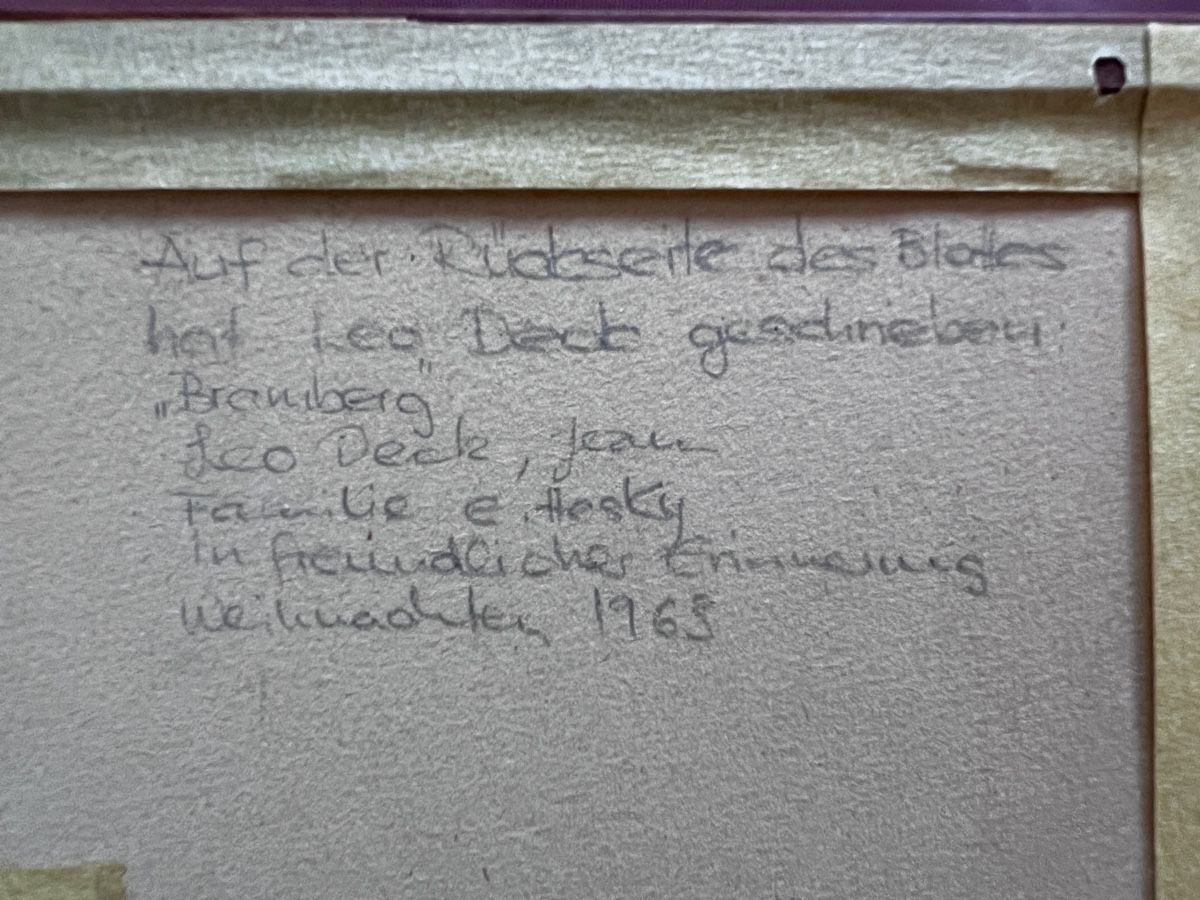 Auf der Rückseite des Blattes
hat Leo Deck geschrieben:
„Bramberg"
Leo Deck, Jean
Familie E. Hosky
In freundlicher Erinnerung
Weihnachten 1963